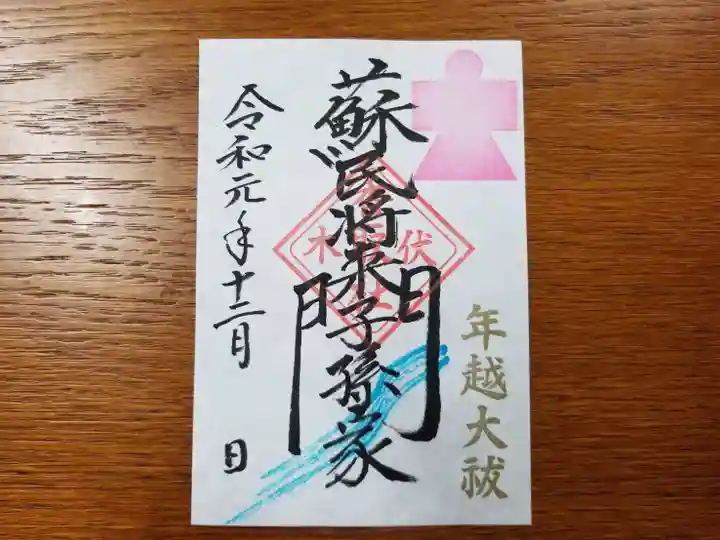 年越大祓
蘇民将来子孫家門
令和元年十二月 日